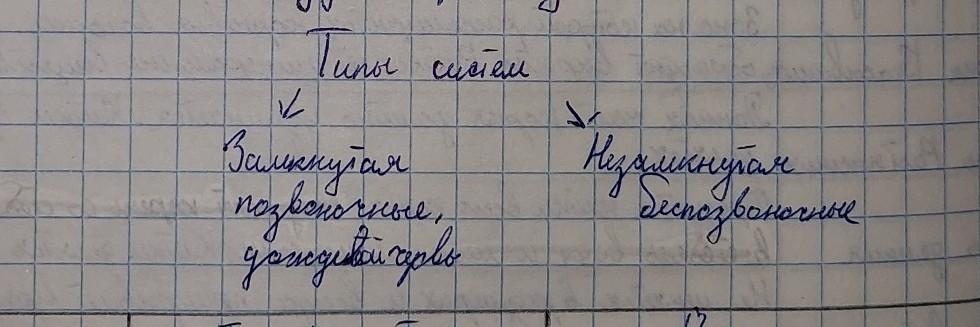 Типы систем
Замкнутая
позвоночные,
дождевой червь
Незамкнутая
беспозвоночные